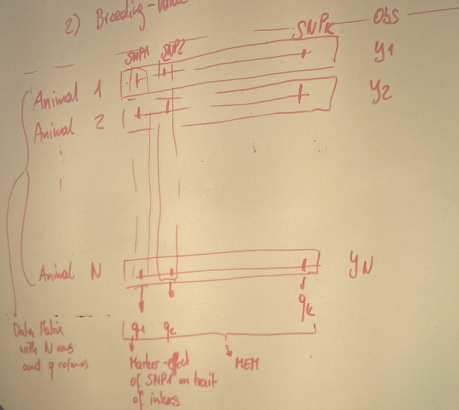 2) Breeding-
SNP1 SNP2 SNPK Obs
Animal 1 y1
Animal 2 y2
Animal N yN
q1 q2 qk
Data Matrix
with N rows
and q columns
Marker-effect
of SNP1 on trait
of interes
MEM